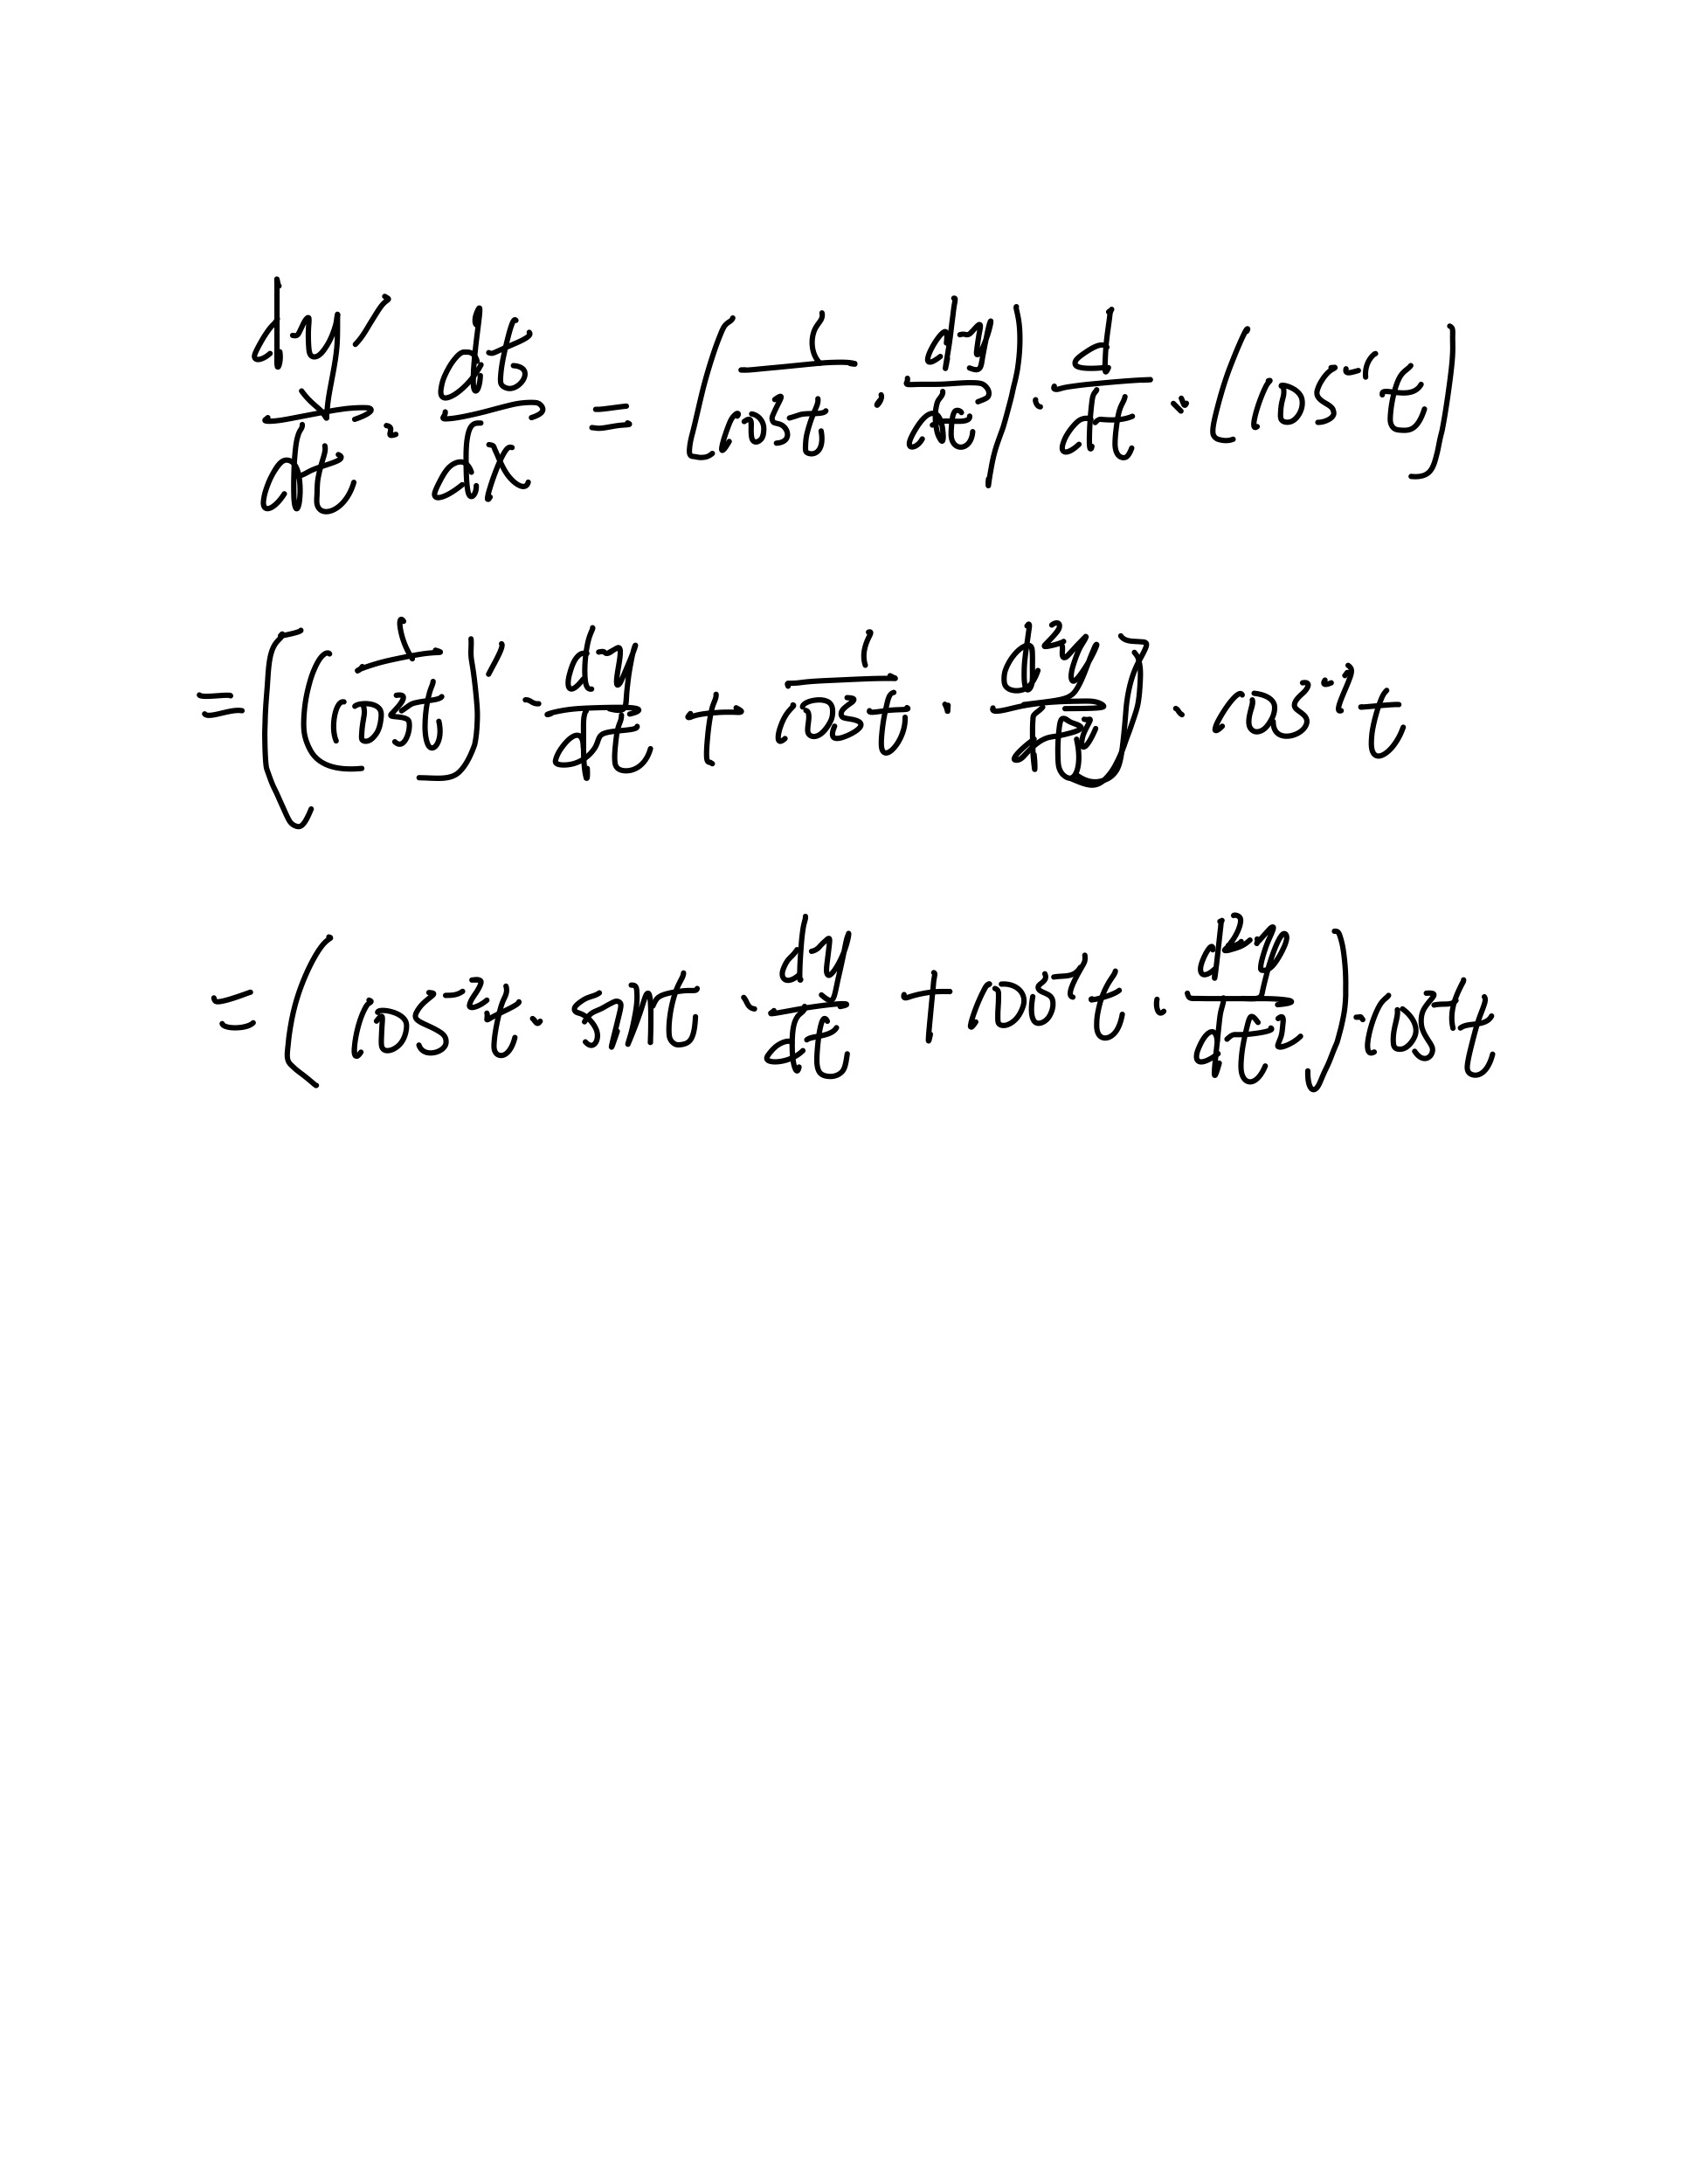 dy'/dt · dt/dx = (1/cost · dy/dt) · d/dt · (cos⁻¹t)
= ((1/cost)' · dy/dt + 1/cost · d²y/dt²) · cos⁻¹t
= (cos⁻²t · sint · dy/dt + cos⁻¹t · d²y/dt²) · cos⁻¹t